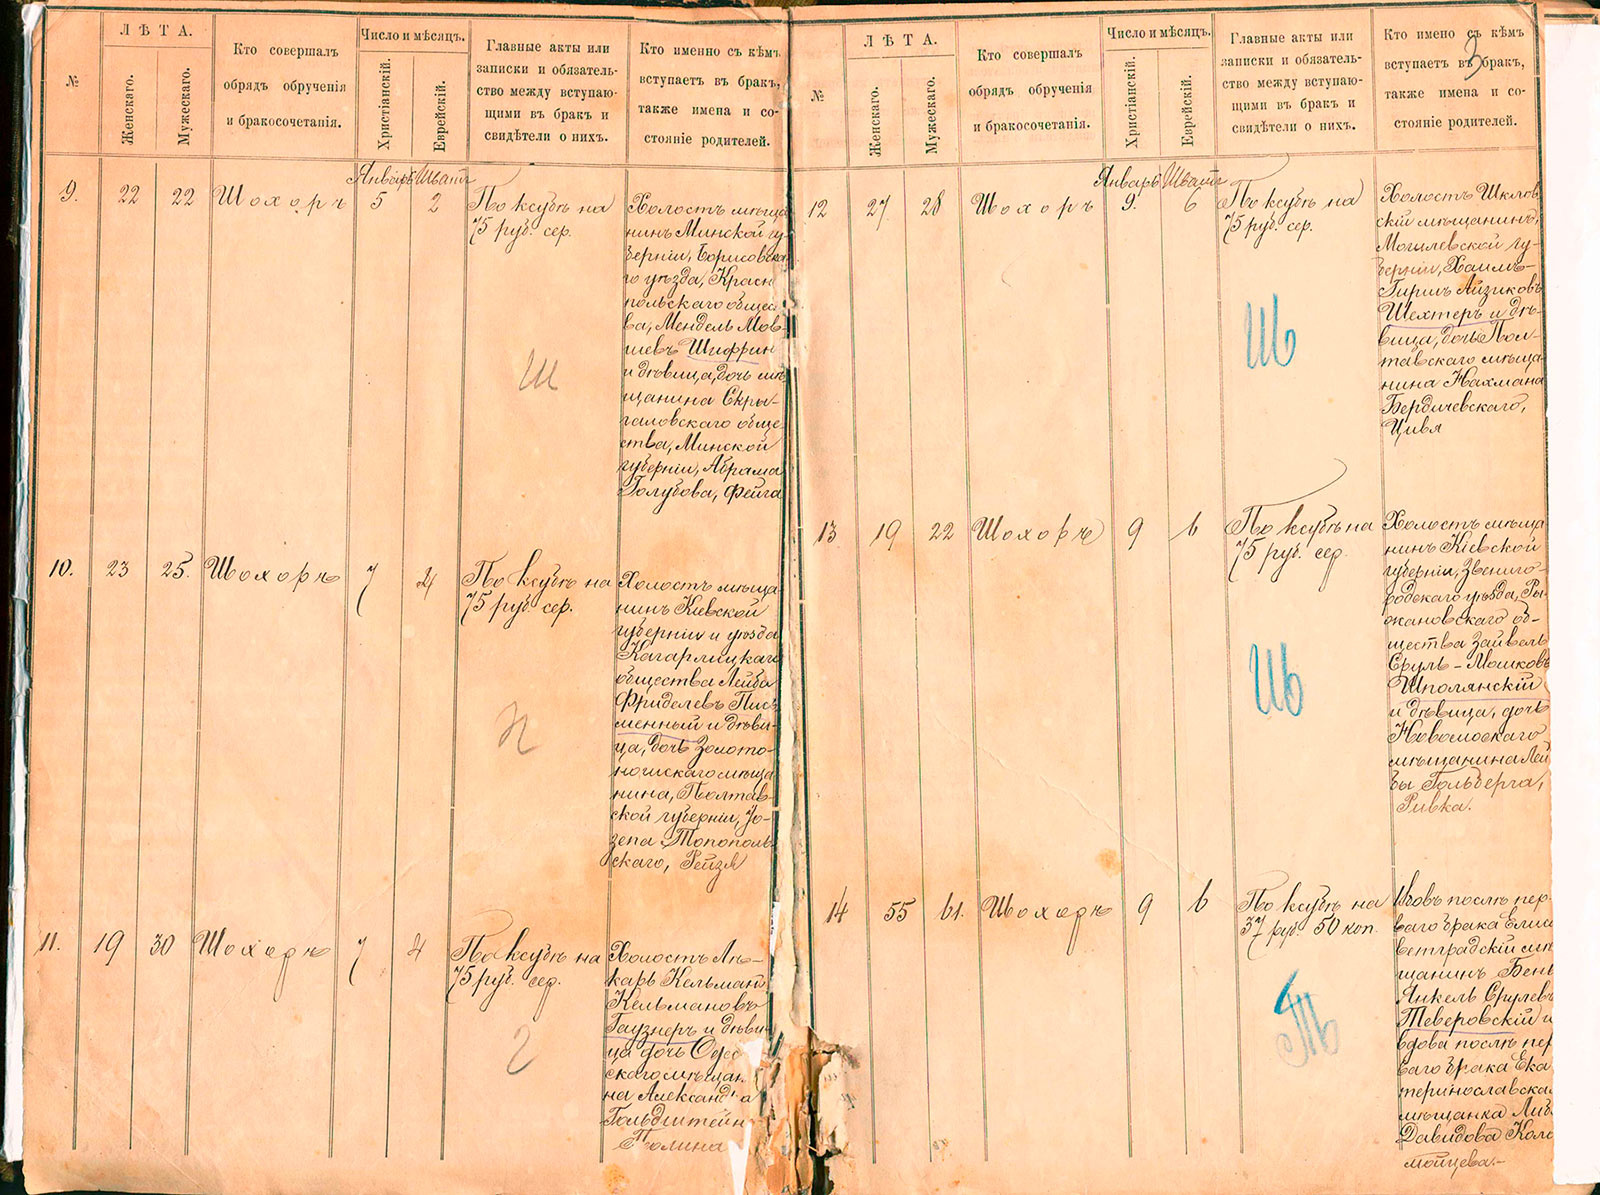 №
ЛѢТА.
Женскаго.
Мужескаго.
Кто совершалъ
обрядъ обрученія
и бракосочетанія.
Число и мѣсяцъ.
Христіанскій.
Еврейскій.
Главные акты или
записки и обязатель-
ство между вступаю-
щими въ бракъ и
свидѣтели о нихъ.
Кто именно съ кѣмъ
вступаетъ въ бракъ,
также имена и со-
стояніе родителей.
9.
22
22
Шохоръ
Январь
5
Шватъ
2
По ксубѣ на
75 руб. сер.
Ш
Холостъ мѣща
нинъ Минской гу-
берніи, Борисовска
го уѣзда, Красн
польскаго общес
ва, Мендель Мов-
шевъ Шифрин
и дѣвица, дочь мѣ
щанина Скры-
галовскаго обще
ства, Минской
губерніи, Абрама
Голубова, Фейга
10.
23
25.
Шохоръ
7
4
По ксубѣ на
75 руб. сер.
П
Холостъ мѣща
нинъ Кіевской
губерніи и уѣзда
Кагарлицкаго
общества Лейба
Фриделевъ Пись
менный и дѣви-
ца, дочь Золото-
ношскаго мѣща
нина, Полтав-
ской губерніи, Іо-
зепа Тополь
скаго, Рейзя
11.
19
30
Шохоръ
7
4
По ксубѣ на
75 руб. сер.
Г
Холостъ Лѣ-
карь Кельман
Кельмановъ
Гаузнеръ и дѣви-
ца дочь Одес
скаго мѣщан
на Александра
Гольдштейн
Полина
№
ЛѢТА.
Женскаго.
Мужескаго.
Кто совершалъ
обрядъ обрученія
и бракосочетанія.
Число и мѣсяцъ.
Христіанскій.
Еврейскій.
Главные акты или
записки и обязатель-
ство между вступаю-
щими въ бракъ и
свидѣтели о нихъ.
3
Кто имено съ кѣмъ
вступаетъ въ бракъ,
также имена и со-
стояніе родителей.
12
27
28
Шохоръ
Январь
9.
Шватъ
6
По ксубѣ на
75 руб. сер.
Шь
Холостъ Шклов
скій мѣщанинъ,
Могилевской гу-
берніи, Хаимъ-
Гиршъ Айзиковъ
Шехтеръ и дѣ-
вица, дочь Пол-
тавскаго мѣща
нина Нахмана
Бердичевскаго,
Цивя
13.
19
22
Шохоръ
9
6
По ксубѣ на
75 руб. сер.
Шь
Холостъ мѣща
нинъ Кіевской
губерніи, Звениго-
родскаго уѣзда, Ры
жановскаго об-
щества Зайвель
Сруль-Мошковъ
Шполянскій
и дѣвица, дочь
Новомоскаго
мѣщанина Лей
бы Гольберга,
Ривка.
14
55
61.
Шохоръ
9
6
По ксубѣ на
37 руб. 50 коп.
Ть
Вдовъ послѣ пер
ваго брака Елиса
ветградскій мѣ
щанинъ Бень
Янкель Срулевъ
Теверовскій и
вдова послѣ пер
ваго брака Ека
теринославская
мѣщанка Либа
Давидова Коло
мойцева.-